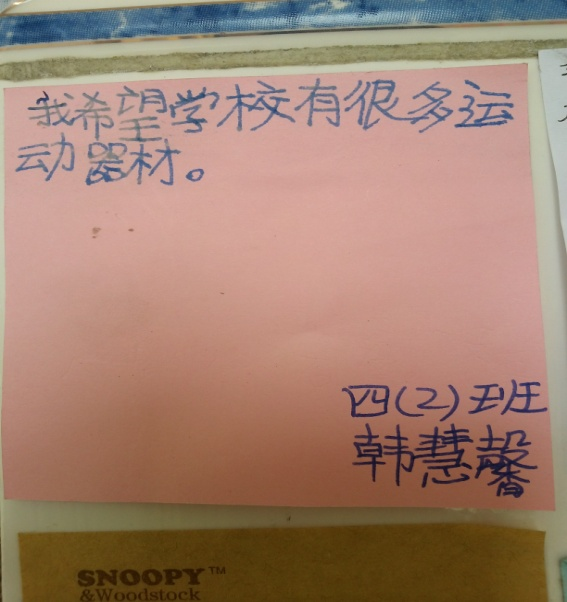 我希望学校有很多运
动器材。
四(2)班
韩慧馨
SNOOPY™
&Woodstock